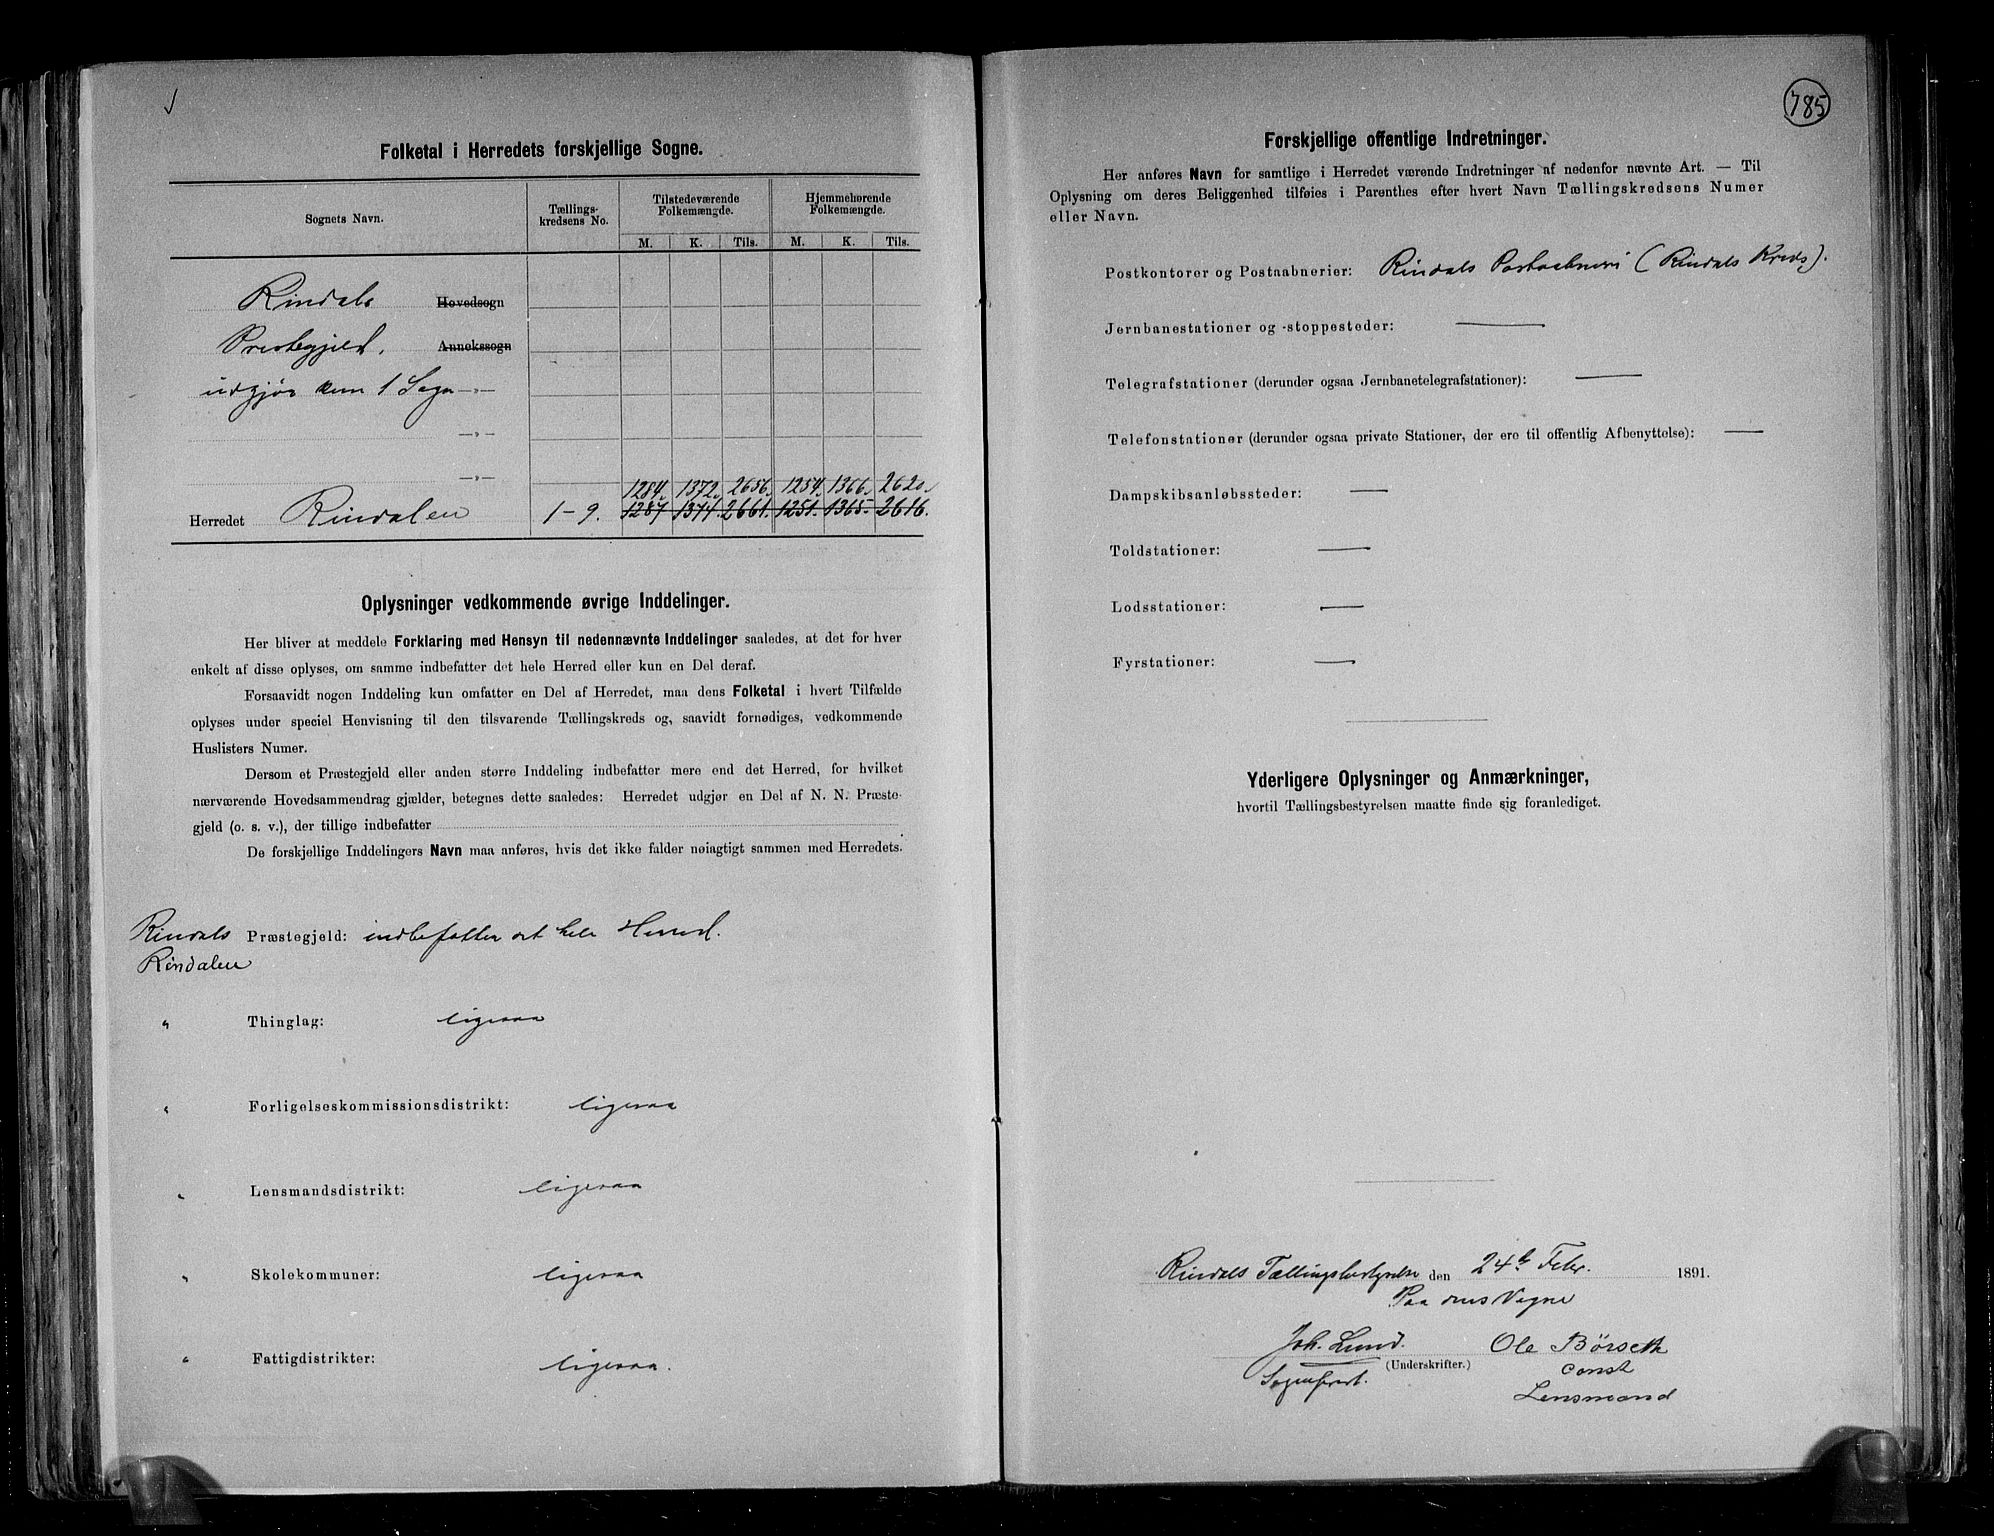 Folketal i Herredets forskjellige Sogne.
Sognets Navn. Tællings-kredsens No. Tilstedeværende Folkemængde. Hjemmehørende Folkemængde.
M. K. Tils. M. K. Tils.
Rindals Hovedsogn
Præstegjeld. Annekssogn
udgjør kun 1 Sogn —„—
—„—
—„—
1284. 1372. 2656. 1254. 1366. 2620.
Herredet Rindalen 1-9. 1287 1374. 2661. 1251. 1365. 2616.
Oplysninger vedkommende øvrige Inddelinger.
Her bliver at meddele Forklaring med Hensyn til nedennævnte Inddelinger saaledes, at det for hver
enkelt af disse oplyses, om samme indbefatter det hele Herred eller kun en Del deraf.
Forsaavidt nogen Inddeling kun omfatter en Del af Herredet, maa dens Folketal i hvert Tilfælde
oplyses under speciel Henvisning til den tilsvarende Tællingskreds og, saavidt fornødiges, vedkommende
Huslisters Numer.
Dersom et Præstegjeld eller anden større Inddeling indbefatter mere end det Herred, for hvilket
nærværende Hovedsammendrag gjælder, betegnes dette saaledes: Herredet udgjør en Del af N. N. Præste-
gjeld (o. s. v.), der tillige indbefatter
De forskjellige Inddelingers Navn maa anføres, hvis det ikke falder nøiagtigt sammen med Herredets.
Rindals Præstegjeld: indbefatter det hele Herred.
Rindalen
„ Thinglag: ligesaa
„ Forligelseskommissionsdistrikt: ligesaa
„ Lensmandsdistrikt: ligesaa
„ Skolekommuner: ligesaa
„ Fattigdistrikter: ligesaa.
785
Forskjellige offentlige Indretninger.
Her anføres Navn for samtlige i Herredet værende Indretninger af nedenfor nævnte Art. — Til
Oplysning om deres Beliggenhed tilføies i Parenthes efter hvert Navn Tællingskredsens Numer
eller Navn.
Postkontorer og Postaabnerier: Rindals Postaabneri (Rindals Kreds).
Jernbanestationer og -stoppesteder: —
Telegrafstationer (derunder ogsaa Jernbanetelegrafstationer): —
Telefonstationer (derunder ogsaa private Stationer, der ere til offentlig Afbenyttelse): —
Dampskibsanløbssteder: —
Toldstationer: —
Lodsstationer: —
Fyrstationer: —
Yderligere Oplysninger og Anmærkninger,
hvortil Tællingsbestyrelsen maatte finde sig foranlediget.
Rindals Tællingsbestyrelse den 24de Febr. 1891.
Paa dens Vegne
Joh. Lund. Ole Børseth
(Underskrifter.)
Sogneprest. const
Lensmand